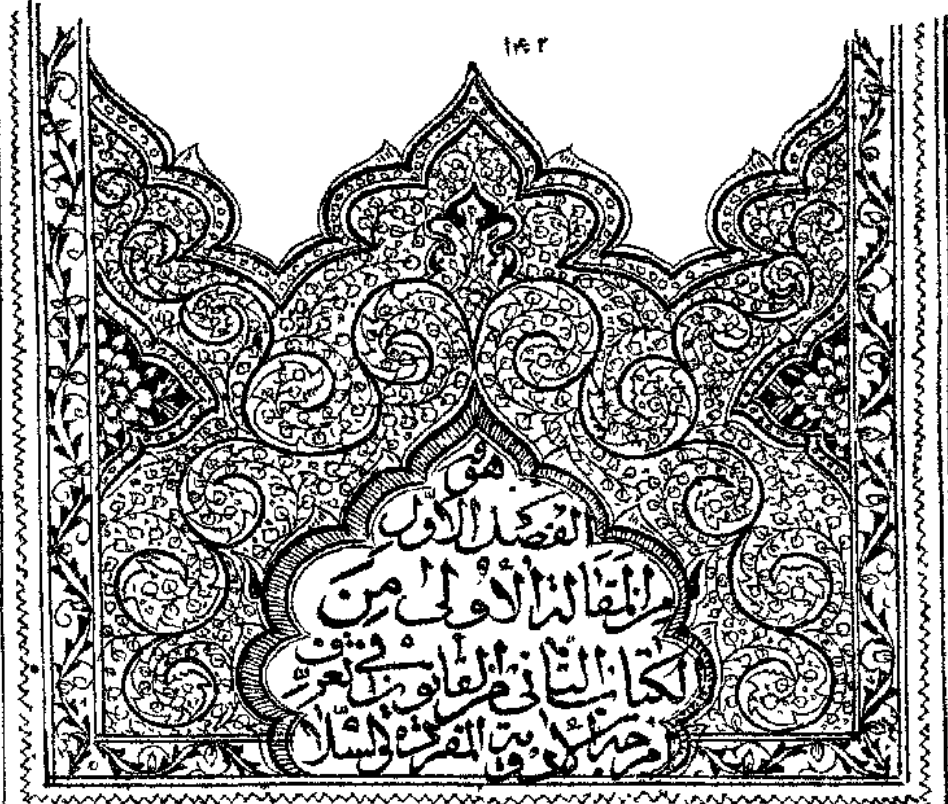 ۱۴۲
هو
الفصل الاوّل
من المَقَالة الاُولى مِنَ
الكتاب الثّانى من القانون فى تعرف
امزجة الادوية المفردة والسّلام